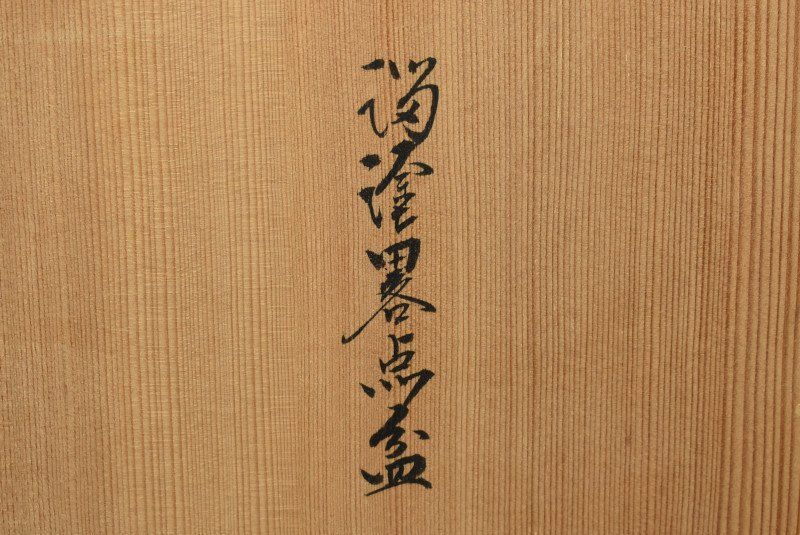 溜塗畧点盆